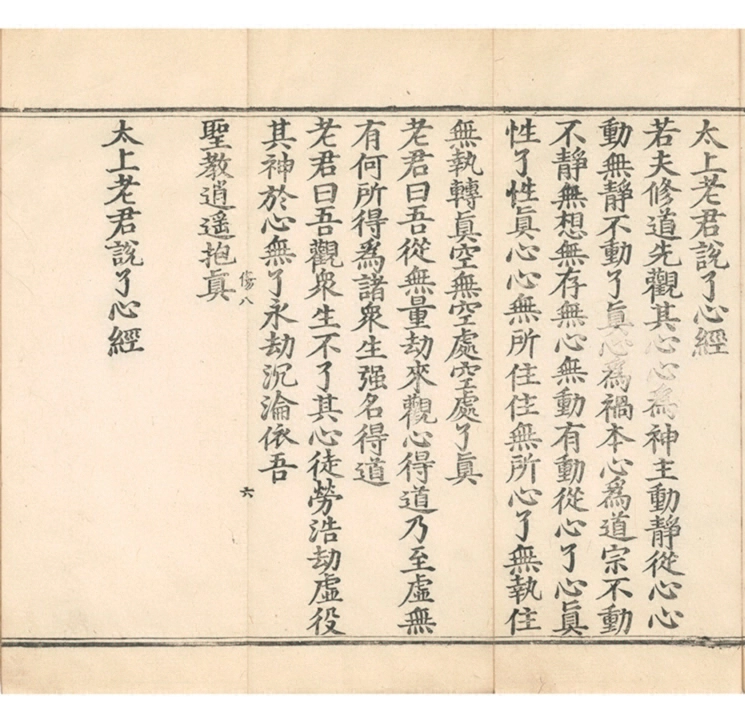 太上老君說了心經
若夫修道先觀其心心為神主動靜從心心
動無靜不動了真心為禍本心為道宗不動
不靜無想無存無心無動有動從心了心真
性了性真心心無所住住無所心了無執住
無執轉真空無空處空處了真
老君曰吾從無量劫來觀心得道乃至虛無
有何所得為諸衆生强名得道
老君曰吾觀衆生不了其心徒勞浩劫虛役
其神於心無了永劫沉淪依吾
傷八 六
聖教逍遥抱真
太上老君說了心經